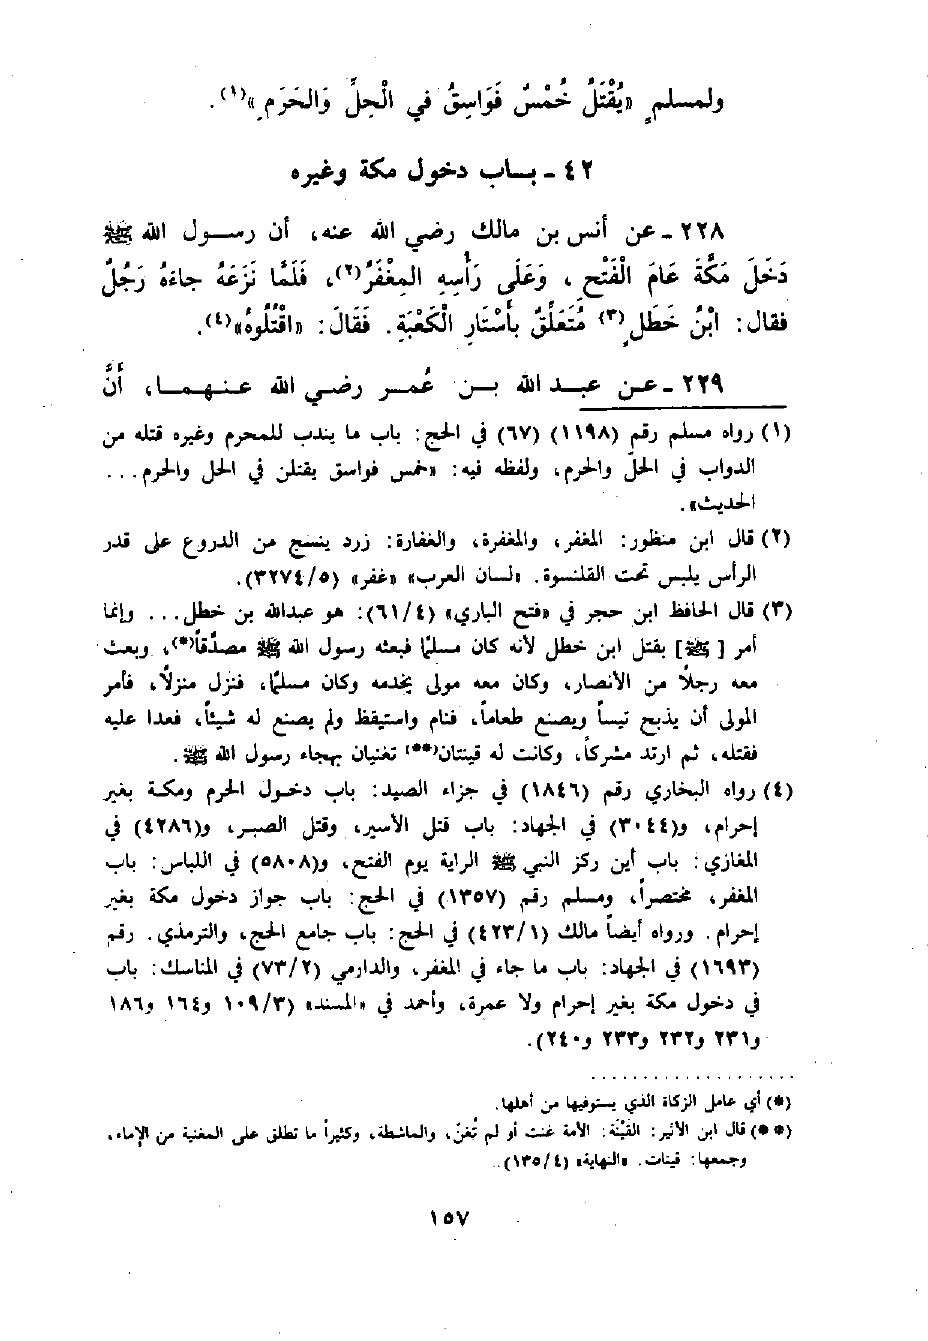 ولمسلمٍ «يُقْتَلُ خُمْسٌ فَوَاسِقُ في الْحِلِّ وَالحَرَمِ»(١).
٤٢ ـ بـاب دخول مكة وغيره
٢٢٨ ـ عن أنس بن مالك رضي الله عنه، أن رسـول الله ﷺ
دَخَلَ مَكَّةَ عَامَ الْفَتْحِ، وَعَلَى رَأْسِهِ المِغْفَرُ(٢)، فَلَمَّا نَزَعَهُ جاءَهُ رَجُلٌ
فقال: ابْنُ خَطَلٍ(٣) مُتَعَلِّقٌ بأَسْتَارِ الْكَعْبَةِ. فَقَالَ: «اقْتُلُوهُ»(٤).
٢٢٩ ـ عـن عبـد الله بـن عُمـر رضـي الله عنـهمـا، أَنَّ
(١) رواه مسلم رقم (١١٩٨) (٦٧) في الحج: باب ما يندب للمحرم وغيره قتله من
الدواب في الحلّ والحرم، ولفظه فيه: «خمس فواسق يقتلن في الحل والحرم...
الحديث».
(٢) قال ابن منظور: المغفر، والمغفرة، والغفارة: زرد ينسج من الدروع على قدر
الرأس يلبس تحت القلنسوة. «لسان العرب» «غفر» (٣٢٧٤/٥).
(٣) قال الحافظ ابن حجر في «فتح الباري» (٦١/٤): هو عبدالله بن خطل... وإنما
أمر [ﷺ] بقتل ابن خطل لأنه كان مسلمًا فبعثه رسول الله ﷺ مصدّقاً(*)، وبعث
معه رجلاً من الأنصار، وكان معه مولى يخدمه وكان مسلمًا، فنزل منزلاً، فأمر
المولى أن يذبح تيساً ويصنع طعاماً، فنام واستيقظ ولم يصنع له شيئاً، فعدا عليه
فقتله، ثم ارتد مشركاً، وكانت له قينتان(**) تغنيان بهجاء رسول الله ﷺ.
(٤) رواه البخاري رقم (١٨٤٦) في جزاء الصيد: باب دخـول الحرم ومكـة بغير
إحرام، و(٣٠٤٤) في الجهاد: باب قتل الأسير، وقتل الصبـر، و(٤٢٨٦) في
المغازي: باب أين ركز النبي ﷺ الراية يوم الفتح، و(٥٨٠٨) في اللباس: باب
المغفر، مختصراً، ومسلم رقم (١٣٥٧) في الحج: باب جواز دخول مكة بغير
إحرام. ورواه أيضاً مالك (٤٢٣/١) في الحج: باب جامع الحج، والترمذي. رقم
(١٦٩٣) في الجهاد: باب ما جاء في المغفر، والدارمي (٧٣/٢) في المناسك: باب
في دخول مكة بغير إحرام ولا عمرة، وأحمد في «المسند» (١٠٩/٣ و١٦٤ و١٨٦
و٢٣١ و٢٣٢ و٢٣٣ و٢٤٠).
(*) أي عامل الزكاة الذي يستوفيها من أهلها.
(**) قال ابن الأثير: القَيْنَة: الأمة غنت أو لم تُغنّ، والماشطة، وكثيراً ما تطلق على المغنية من الإماء،
وجمعها: قينات. «النهاية» (١٣٥/٤).
١٥٧